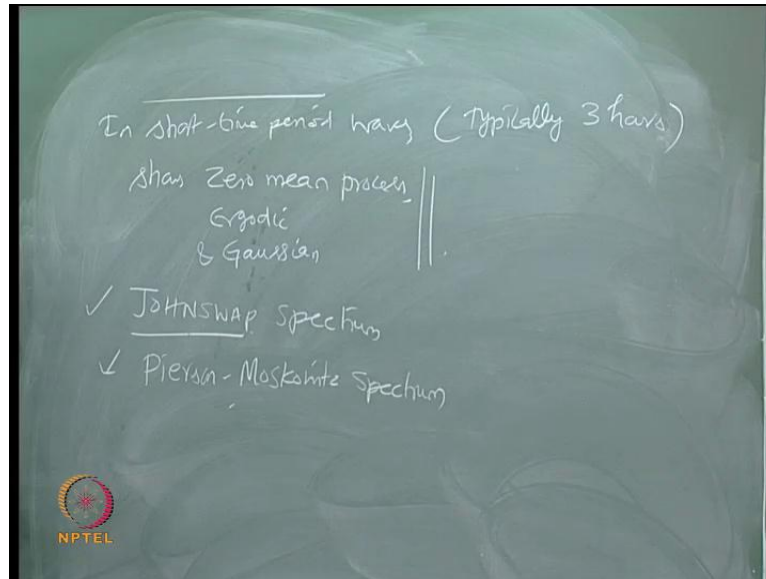 In short-time period waves (Typically 3 hours)
shows Zero mean process,
Ergodic
& Gaussian
✓ JOHNSWAP Spectrum
✓ Pierson-Moskowitz Spectrum
NPTEL